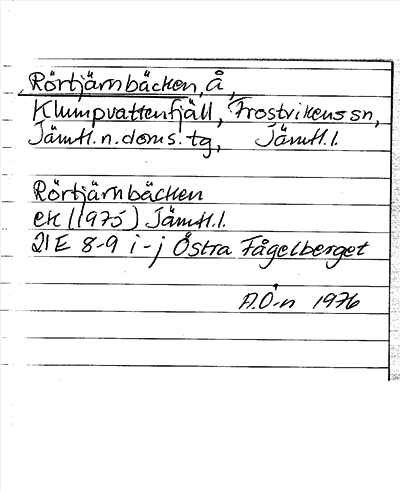 Rörtjärnbäcken, å,
Klumpvattenfjäll, Frostvikens sn,
Jämtl.n.doms.tg, Jämtl.l.
Rörtjärnbäcken
ek (1975) Jämtl.l.
21E 8-9 i-j Östra Fågelberget
A.Ö-n 1976